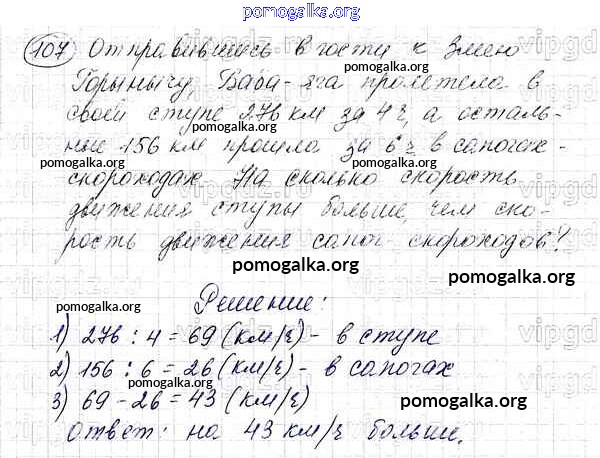 pomogalka.org
107 Отправившись в гости к Змею
pomogalka.org
Горынычу, Баба-Яга пролетела в
своей ступе 276 км за 4 ч, а осталь-
pomogalka.org
ные 156 км прошла за 6 ч в сапогах-
pomogalka.org
скороходах. На сколько скорость
движения ступы больше, чем ско-
рость движения сапог-скороходов?
pomogalka.org
pomogalka.org
pomogalka.org
Решение:
1) 276 : 4 = 69 (км/ч) - в ступе
2) 156 : 6 = 26 (км/ч) - в сапогах
pomogalka.org
3) 69 - 26 = 43 (км/ч)
pomogalka.org
Ответ: на 43 км/ч больше.